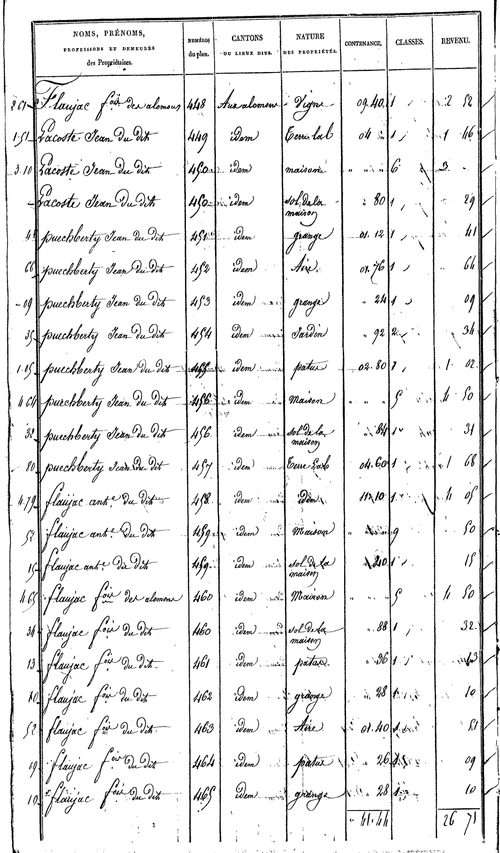 NOMS, PRÉNOMS, NUMÉROS CANTONS NATURE CONTENANCE. CLASSES. REVENU.
PROFESSIONS ET DEMEURES du plan. OU LIEUX DITS. DES PROPRIÉTÉS.
des Propriétaires.
Flaujac f.ois des alomons 448 Aux alomons Vigne 09.40 1 2 52
1.51 Lacoste Jean du dit 449 idem Terre lab 04 1 1 46
3.10 Lacoste Jean du dit 450 idem maison 6 3
Lacoste Jean du dit 450 idem sol de la 80 1 29
maison
puechberty Jean du dit 451 idem grange 01.12 1 41
66 puechberty Jean du dit 452 idem Aire 01.76 1 64
09 puechberty Jean du dit 453 idem grange 24 1 09
35 puechberty Jean du dit 454 idem Jardin 92 2 34
1.05 puechberty Jean du dit 455 idem patus 02.80 1 02
4 64 puechberty Jean du dit 456 idem Maison 5 4 50
32 puechberty Jean du dit 456 idem sol de la 84 1 31
maison
80 puechberty Jean du dit 457 idem Terre Lab 04.60 1 1 68
4.79 flaujac ant.e du dit 458 idem idem 11.10 1 4 05
flaujac ant.e du dit 459 idem Maison 9 50
15 flaujac ant.e du dit 459 idem sol de la 40 1 15
maison
4 65 flaujac f.ois des alomons 460 idem Maison 5 4 50
34 flaujac f.ois du dit 460 idem sol de la 88 1 32
maison
13 flaujac f.ois du dit 461 idem patus 36 1 13
10 flaujac f.ois du dit 462 idem grange 28 1 10
52 flaujac f.ois du dit 463 idem Aire 01.40 1 51
09 flaujac f.ois du dit 464 idem patus 26 09
10 flaujac f.ois du dit 465 idem grange 28 1 10
41.44 26 71